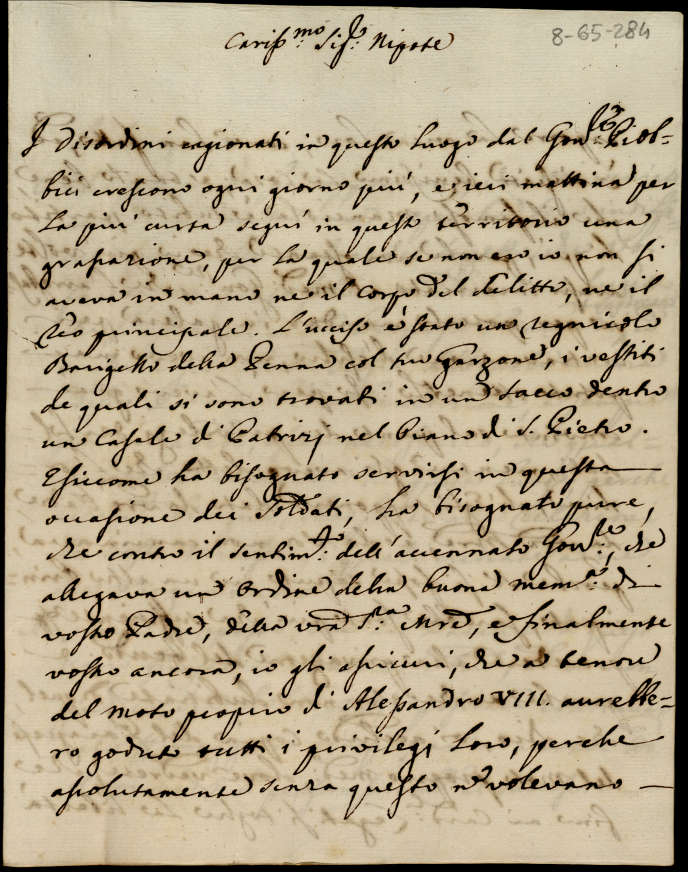 8-65-284
Cariss.mo Sig.r Nipote
I disordini cagionati in questo luogo dal Gov.re Piob=
bici crescono ogni giorno più, e ieri mattina per
la più curta seguì in questo territorio una
grassazione, per la quale se non ero io non si
aveva in mano ne il corpo del delitto, ne il
reo principale. L'ucciso è stato un regnicolo
Barigello della Penna col suo Garzone, i vestiti
de quali si sono trovati in un sacco dentro
un Casale di Patrizj nel Piano di S. Pietro.
E siccome ha bisognato servirsi in questa
occasione dei soldati, ha bisognato pure,
che contro il sentim.to dell'accennato Gov.re, che
allegava un ordine della buona mem.a di
vostro Padre, della vra S.ra Mre, e finalmente
vostro ancora, io gli assicuri, che a tenore
del moto proprio di Alessandro VIII. aurebbe=
ro goduto tutti i privilegj loro, perche
assolutamente senza questo n volevano